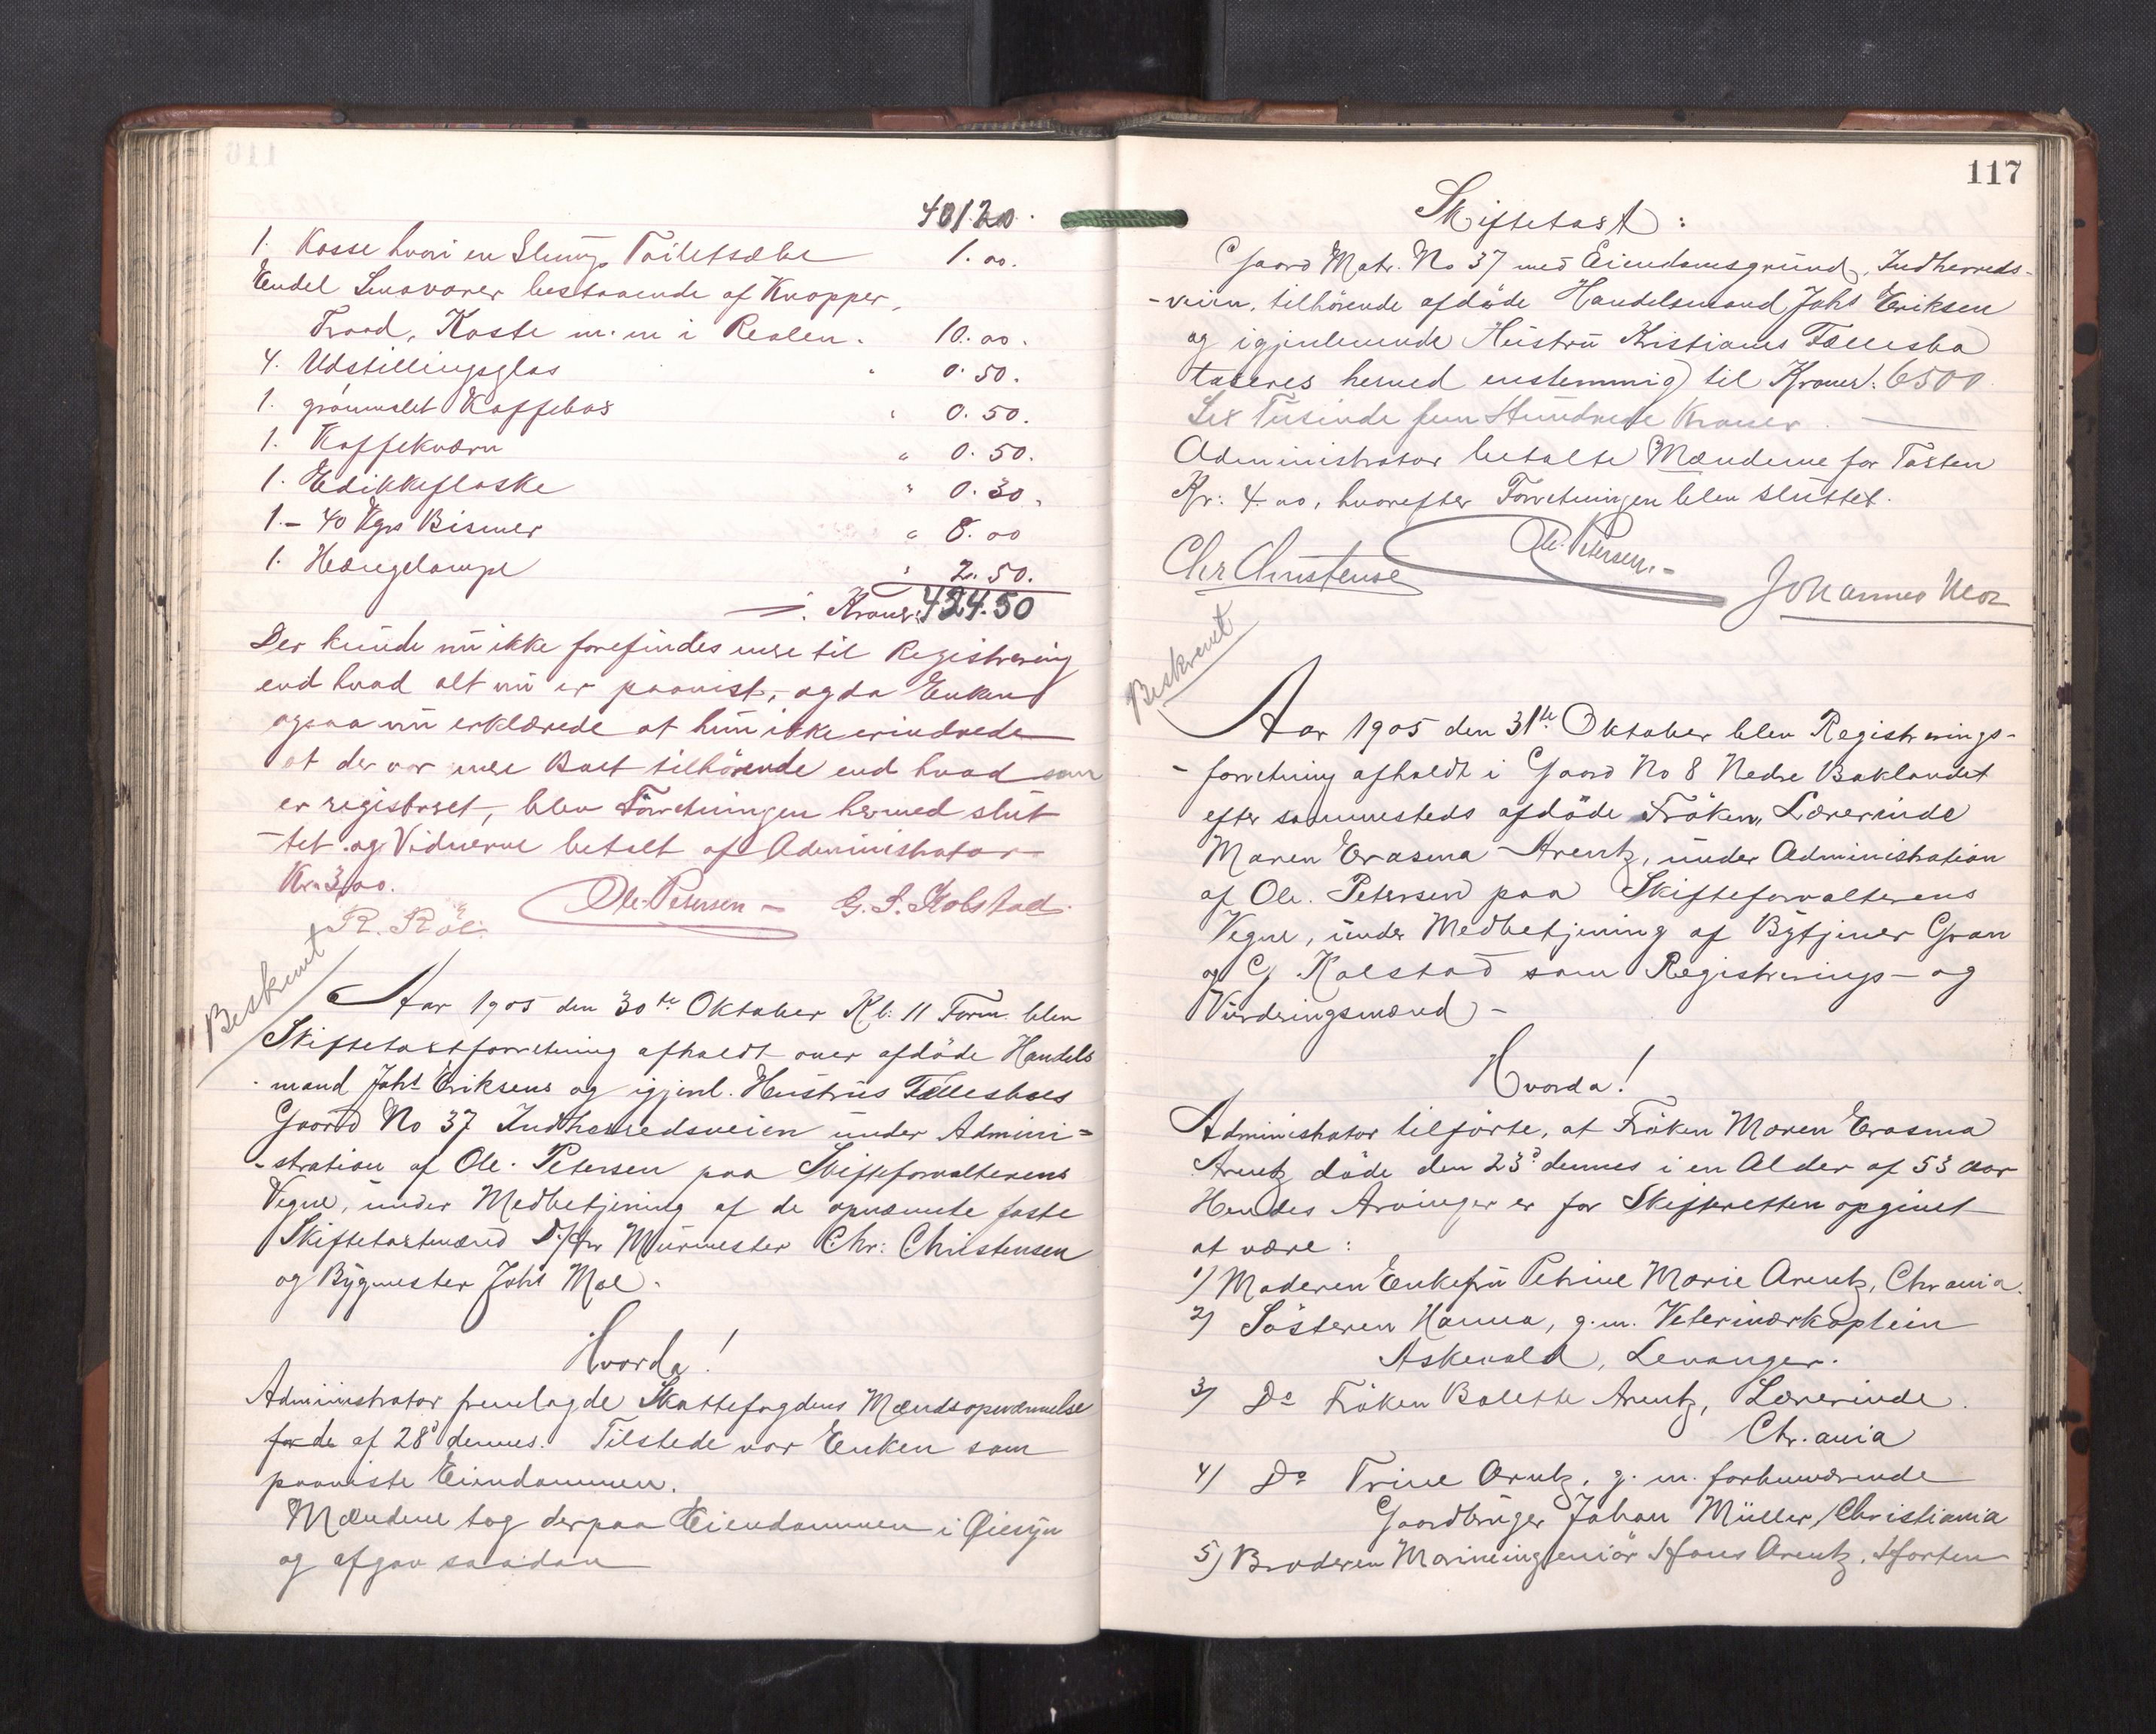 401.20.
1. Kasse hvori en Slump Toiletsæbe 1.00.
Endel Smavarer bestaaende af Knapper,
Traad, Koste m.m i Reolen. 10.00.
4. Udstillingsglas " 0.50.
1. grönmalet Kaffebøs " 0.50.
1. Kaffekværn " 0.50.
1. Edikkeflaske " 0.30.
1.- 40 Kgs Bismer " 8.00
1. Hængelampe " 2.50.
Kroner: 424.50
Der kunde nu ikke forefindes mere til Registrering
end hvad alt nu er paavist, og da Enken
ogsaa nu erklærede at hun ikke erindrede
at der var mere Boet tilhörende end hvad som
er registreret, blev Forretningen hermed slut-
-tet og Vidnerne betalt af Administrator
Kr. 3,00.
Ole Petersen - G. S. Kolstad.
R. Röe.
Beskrevet
Aar 1905 den 30te Oktober Kl: 11 Form. blev
Skiftetaxtforretning afholdt over afdöde Handels
-mand Johs Eriksens og igjenl. Hustrus Fællesboes
Gaard No 37 Indherredsveien under Admini=
-stration af Ole Petersen paa Skifteforvalterens
Vegne, under Medbetjening af de opnævnte faste
Skiftetaxtmænd D'Hrr Murmester Chr: Christensen
og Bygmester Johs Moe.
Hvorda!
Administrator fremlagde Skattefogdens Mændsopnævnelse
for de af 28d dennes. Tilstede var Enken som
paaviste Eiendommen.
Mændene tog derpaa Eiendommen i Øiesyn
og afgav saadan
117
Skiftetaxt:
Gaard Matr. No 37 med Eiendomsgrund, Indherreds-
-veien, tilhörende afdöde Handelsmand Johs Eriksen
og igjenlevende Hustru Kristianes Fællesbo
taxeres herved enstemmig til Kroner: 6500
Sex Tusinde fem Hundrede Kroner.
Administrator betalte Mændene for Taxten
Kr: 4.00, hvorefter Forretningen blev sluttet.
Ole Petersen.-
Chr Christensen
Johannes Moe
Beskrevet
Aar 1905 den 31te Oktober blev Registrerings-
-forretning afholdt i Gaard No 8 Nedre Baklandet
efter sammesteds afdöde Fröken, Lærerinde
Maren Erasma Arentz, under Administration
af Ole Petersen paa Skifteforvalterens
Vegne, under Medbetjening af Bytjener Gran
og G Kolstad som Registrerings- og
Vurderingsmænd -
Hvorda!
Administrator tilförte, at Fröken Maren Erasma
Arentz döde den 23d dennes i en Alder af 53 aar
Hendes Arvinger er for Skifteretten opgivet
at være:
1) Moderen Enkefru Petrine Marie Arentz, Chr.ania.
2) Sösteren Hanna, g.m. Veterinærkaptein
Askevold, Levanger.
3) Do Fröken Bolette Arentz, Lærerinde.
Chr.ania
4) Do Trine Arntz, g.m. forhenværende
Gaardbruger Johan Müller, Christiania
5) Broderen Marineingeniör Hans Arentz, Horten